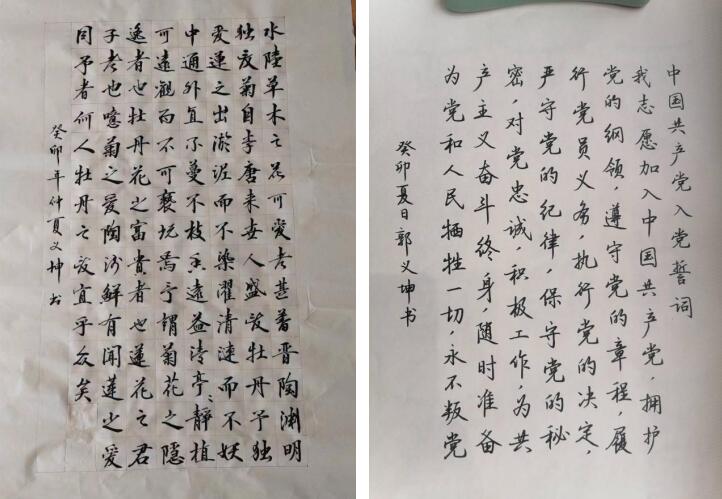 水陸草木之花可愛者甚蕃晋陶渊明
独爱菊自李唐来世人盛爱牡丹予独
爱蓮之出淤泥而不染濯清涟而不妖
中通外直不蔓不枝香遠益清亭〻静植
可遠觀而不可亵玩焉予謂菊花之隱
逸者也牡丹花之富貴者也蓮花之君
子者也噫菊之爱陶後鲜有聞蓮之爱
同予者何人牡丹之爱宜乎众矣
癸卯年仲夏义坤书
中国共产党入党誓词
我志愿加入中国共产党，拥护
党的纲领，遵守党的章程，履
行党员义务，执行党的决定，
严守党的纪律，保守党的秘
密，对党忠诚，积极工作，为共
产主义奋斗终身，随时准备
为党和人民牺牲一切，永不叛党
癸卯夏日郭义坤书